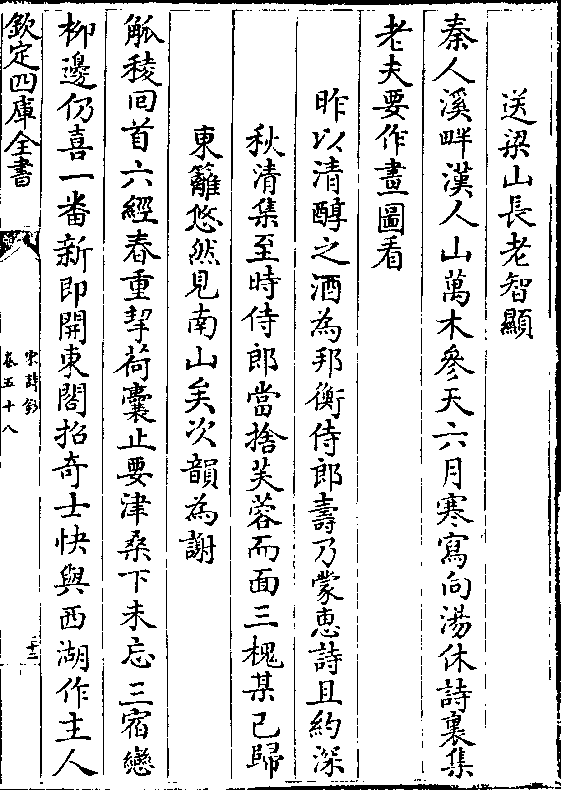 送梁山長老智顯
秦人溪畔漢人山萬木參天六月寒寫向湯休詩裏集
老夫要作畫圖看
昨以清醇之酒為邦衡侍郎壽乃蒙恵詩且約深
秋清集至時侍郎當捨芙蓉而面三槐某已歸
東籬悠然見南山矣次韻為謝
觚稜回首六經春重挈荷囊止要津桑下未忘三宿戀
柳邊仍喜一番新即開東閣招奇士快與西湖作主人
欽定四庫全書
宋詩鈔
卷五十八
三十二